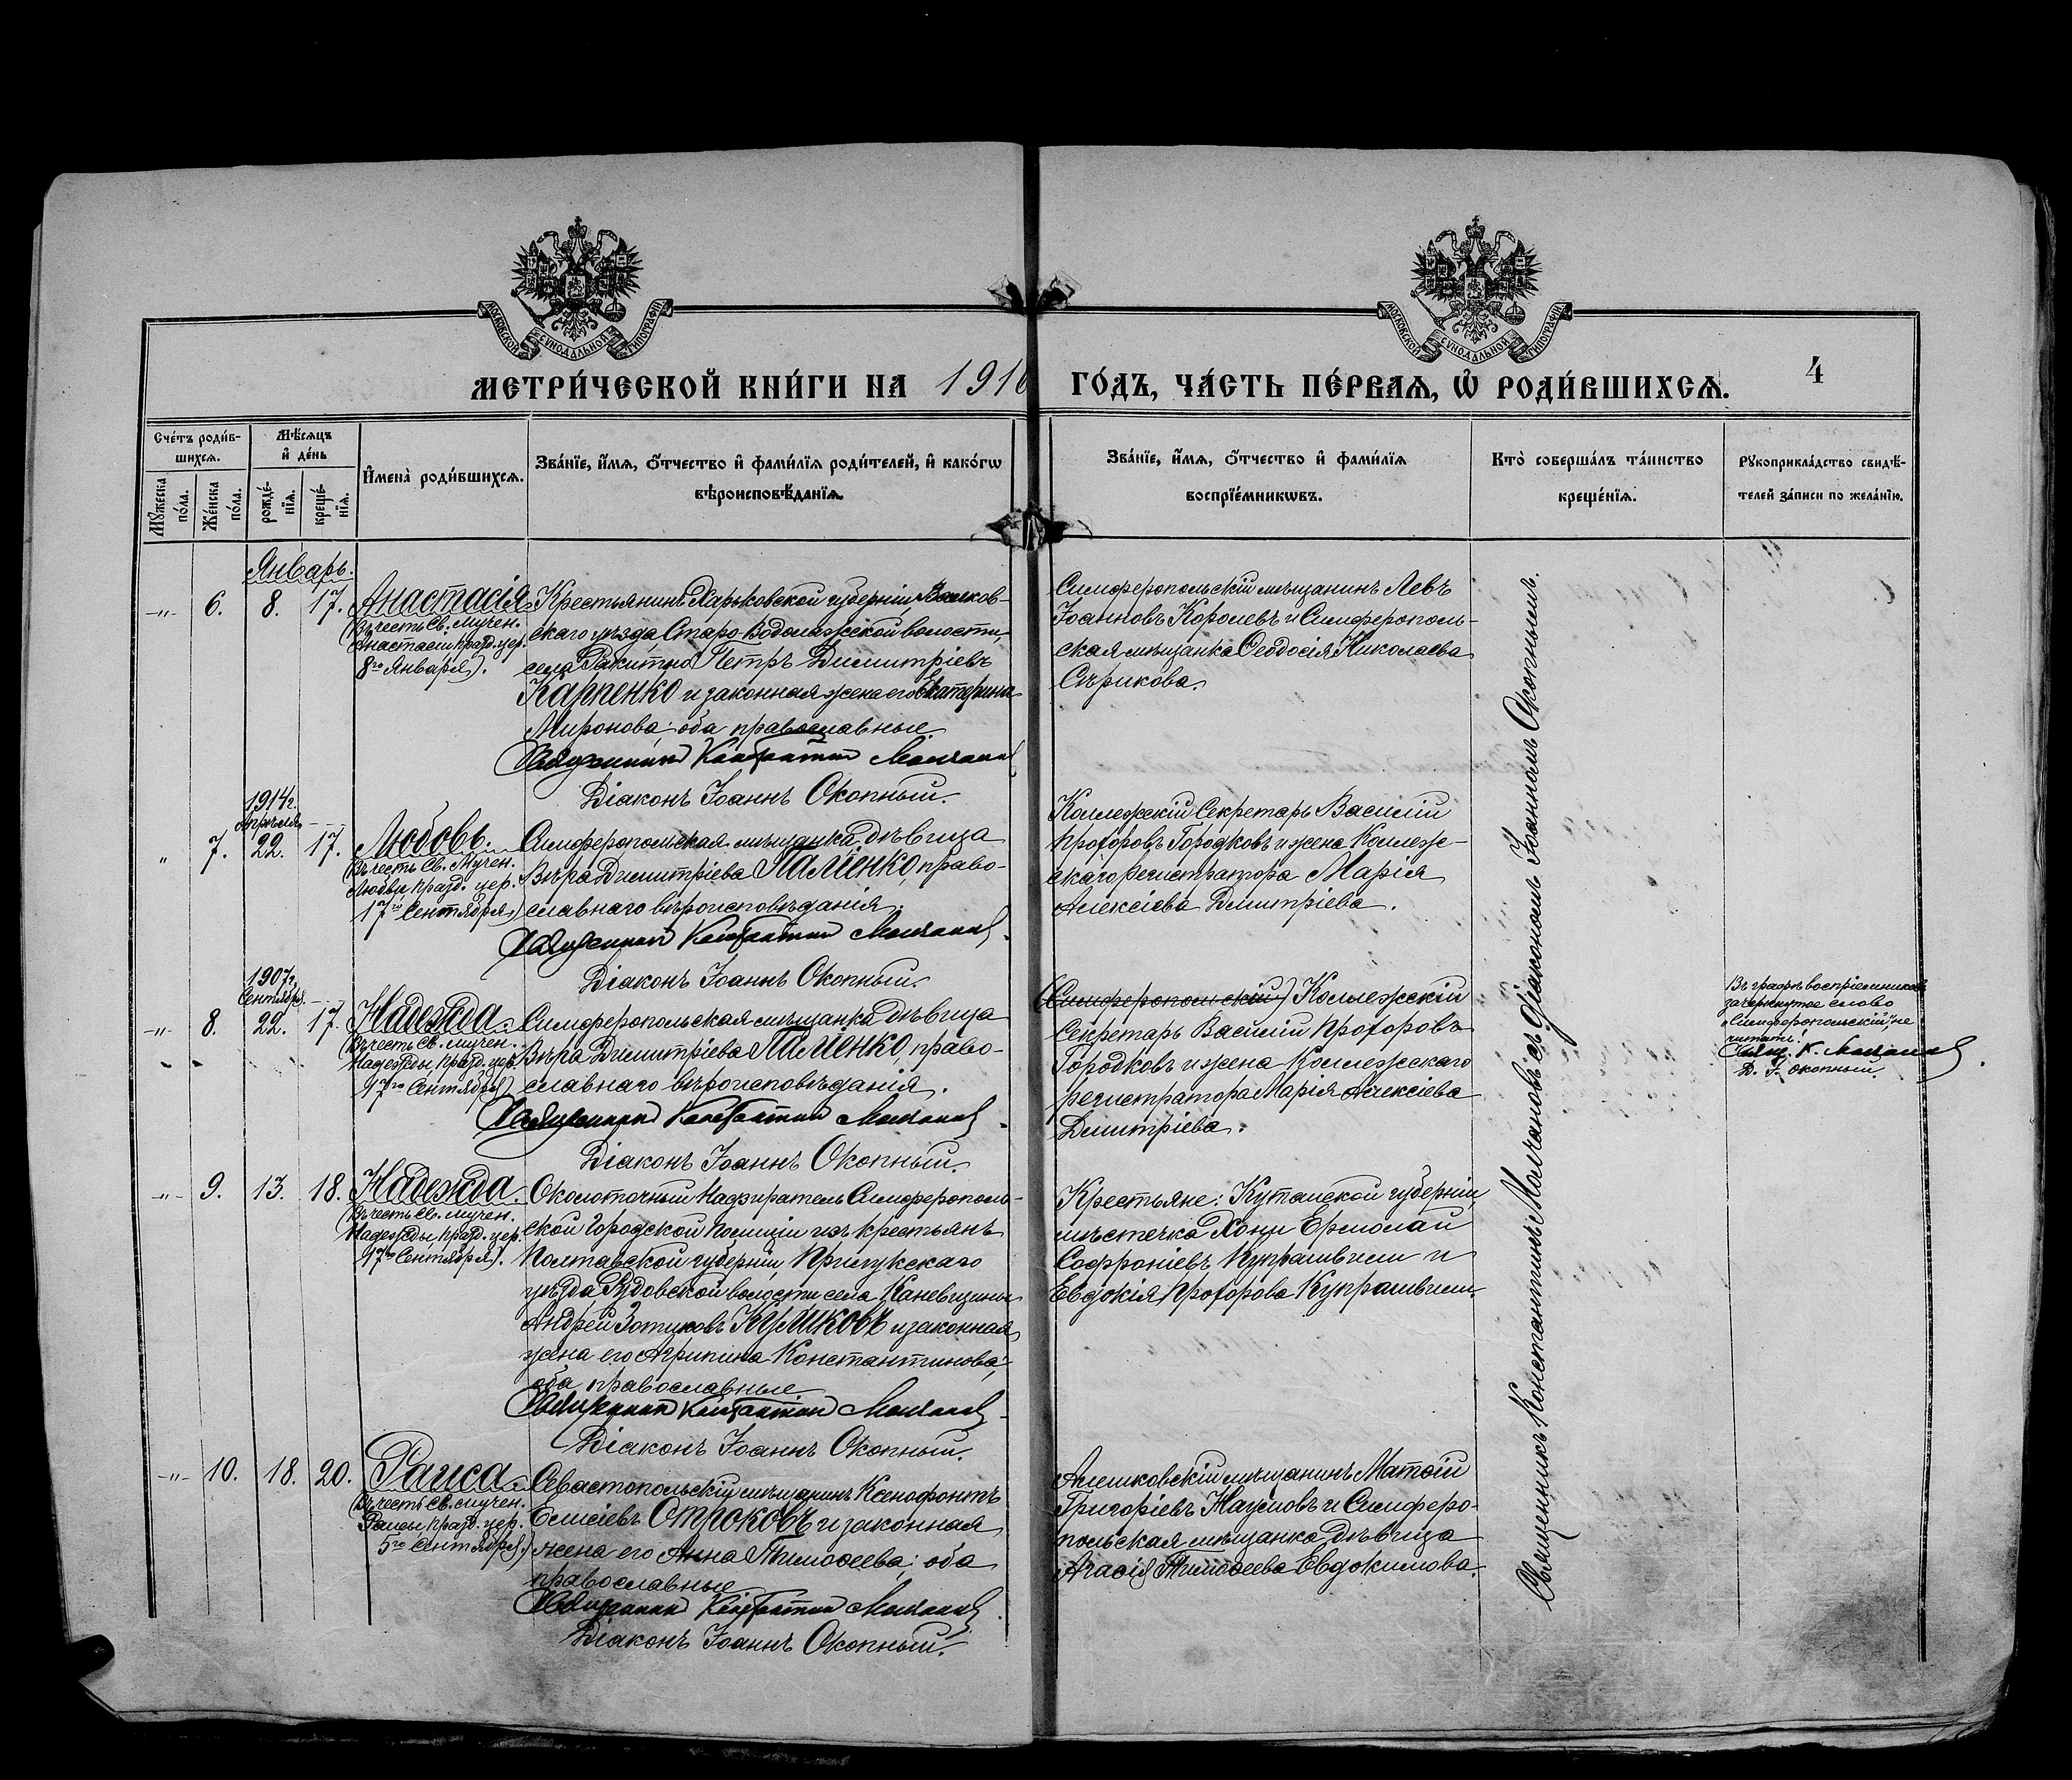 МОСКОВСКОЙ СѴНОДАЛЬНОЙ ТИПОГРАФІИ
МОСКОВСКОЙ СѴНОДАЛЬНОЙ ТИПОГРАФІИ
МЕТРИ́ЧЕСКОЙ КНИ́ГИ НА 1916 ГО́ДЪ, ЧА́СТЬ ПЕ́РВАѦ, Ѽ РОДИ́ВШИХСѦ.
4
Сче́тъ роди́в-
шихсѧ.
Мꙋ́жеска
по́ла.
Же́нска
по́ла.
Мѣ́сѧцъ
и҆ де́нь
рожде́-
нїѧ.
креще́-
нїѧ.
И҆мена̀ роди́вшихсѧ.
Зва́нїе, и҆́мѧ, ѻ҆́тчество и҆ фами́лїѧ роди́телей, и҆ како́гѡ
вѣроисповѣ́данїѧ.
Зва́нїе, и҆́мѧ, ѻ҆́тчество и҆ фами́лїѧ
воспрїе́мникѡвъ.
Кто̀ соверша́лъ та́инство
креще́нїѧ.
Рꙋкоприкла́дство свидѣ́-
телей за́писи по жела́нїю.
Январь.
-„- 6. 8. 17. Анастасія
(Въ честь Св. мучен.
Анастасіи, празд. цер.
8го Января).
Крестьянинъ Харьковской губерніи, Валков-
скаго уѣзда, Старо-Водолажской волости,
села Ракитно Петръ Димитріевъ
Карпенко и законная жена его Екатерина
Миронова; оба православные.
Священникъ Константинъ Молчановъ
Діаконъ Іоаннъ Окопный.
Симферопольскій мѣщанинъ Левъ
Іоанновъ Королевъ и Симферополь-
ская мѣщанка Ѳеодосія Николаева
Сѣрикова.
1914 г.
Апрѣля
„ 7. 22. 17. Любовь.
(Въ честь Св. Мучен.
Любви, празд. цер.
17го Сентября)
Симферопольская мѣщанка, дѣвица
Вѣра Димитріева Паліенко, право-
славнаго вѣроисповѣданія.
Священникъ Константинъ Молчановъ.
Діаконъ Іоаннъ Окопный.
Коллежскій Секретарь Василій
Прохоровъ Городковъ и жена Коллеж-
скаго регистратора Марія
Алексіева Димитріева.
1907 г.
Сентября.
-„- 8. 22. 17. Надежда.
(Въ честь Св. мучен.
Надежды, празд. цер.
17го Сентября)
Симферопольская мѣщанка дѣвица
Вѣра Димитріева Паліенко, право-
славнаго вѣроисповѣданія.
Священникъ Константинъ Молчановъ.
Діаконъ Іоаннъ Окопный.
(Симферопольскій) Коллежскій
Секретарь Василій Прохоровъ
Городковъ и жена Коллежскаго
регистратора Марія Алексіева
Димитріева.
Въ графѣ воспріемниковъ
зачеркнутое слово
„Симферопольскій“, не
читать.
Свящ. К. Молчановъ
Д. І. Окопный.
-„- 9. 13. 18. Надежда.
(Въ честь Св. мучен.
Надежды, празд. цер.
17го Сентября).
Околоточный Надзиратель Симферополь-
ской Городской Полиціи изъ крестьянъ
Полтавской губерніи, Прилукскаго
уѣзда Рудовской волости села Каневщины
Андрей Зотиковъ Куликовъ и законная
жена его Агрипина Константинова;
оба православные.
Священникъ Константинъ Молчановъ
Діаконъ Іоаннъ Окопный.
Крестьяне: Кутаиской губерніи,
мѣстечка Хони Ермолай
Софроніевъ Купрашвили и
Евдокія Прохорова Купрашвили.
-„- 10. 18. 20. Раиса
(Въ честь Св. мучен.
Раисы, празд. цер.
5го Сентября.)
Севастопольскій мѣщанинъ Ксенофонтъ
Елисіевъ Отроковъ и законная
жена его Анна Тимоѳеева; оба
православные.
Священникъ Константинъ Молчановъ.
Діаконъ Іоаннъ Окопный.
Алешковскій мѣщанинъ Матѳій
Григоріевъ Наумовъ и Симферо-
польская мѣщанка, дѣвица
Агасія Тимоѳеева Евдокимова.
Священникъ Константинъ Молчановъ съ Діакономъ Іоанномъ Окопнымъ.